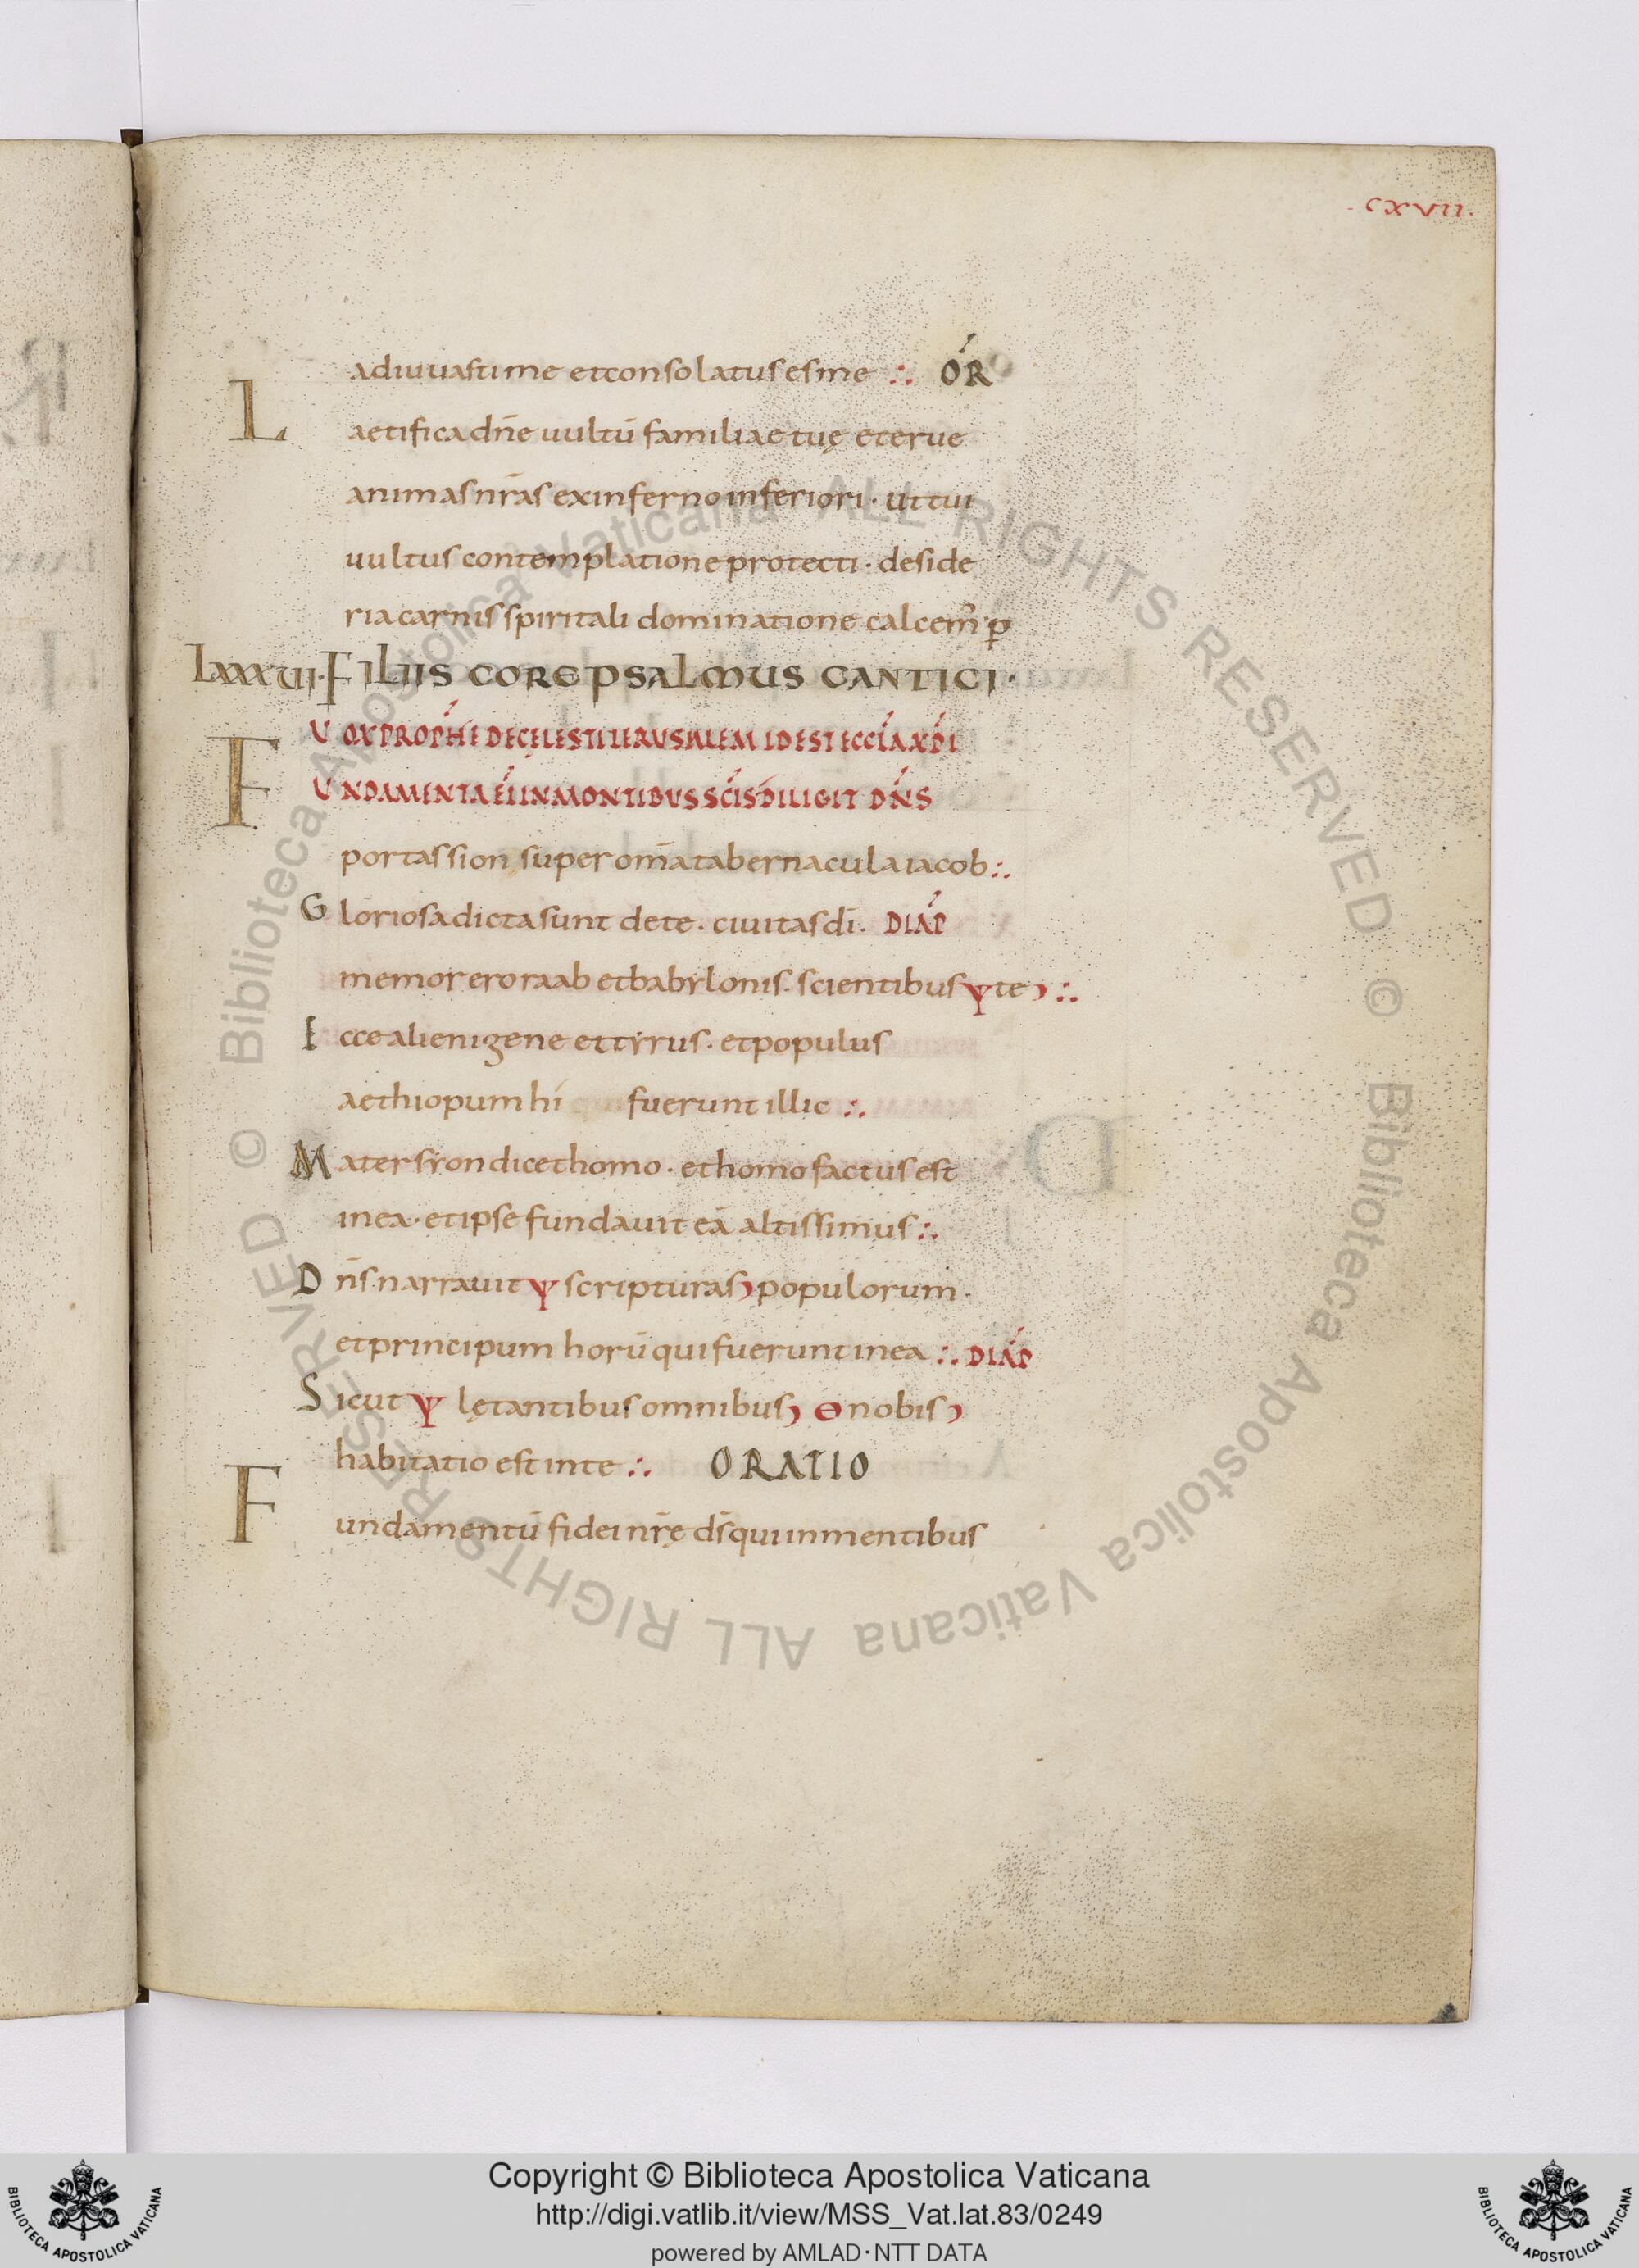 ·CXVII·
adiuuasti me et consolatus es me ∴ ÓR
Laetifica dn̄e uultū familiae tuę et erue
animas nr̄as ex inferno inferiori · ut tui
uultus contemplatione protecti · deside
ria carnis spiritali dominatione calcem̄ · p̄
LXXXVI · FILIIS CORE PSALMUS CANTICI ·
VOX PROPHE DE CĘLESTI IERUSALEM ID EST ECCLA XPI
FUNDAMENTA EI IN MONTIBUS SCIS DILIGIT DNS
portas sion super om̄a tabernacula iacob ∴
Gloriosa dicta sunt de te · ciuitas dī · DIAP
memor ero raab et babylonis · scientibus ψ te ∴
Ecce alienigene et tyrus · et populus
aethiopum hi fuerunt illic ∴
Mater syon dicet homo · et homo factus est
in ea · et ipse fundauit eā altissimus ∴
Dn̄s narrauit ψ scripturas populorum ·
et principum horū qui fuerunt in ea ∴ DIAP
Sicut ψ lętantibus omnibus Θ nobis
habitatio est in te ∴ ORATIO
Fundamentū fidei nr̄ę ds̄ qui in mentibus
Biblioteca Apostolica Vaticana ALL RIGHTS RESERVED ©
Biblioteca Apostolica Vaticana ALL RIGHTS RESERVED ©
Copyright © Biblioteca Apostolica Vaticana
http://digi.vatlib.it/view/MSS_Vat.lat.83/0249
powered by AMLAD·NTT DATA
BIBLIOTECA APOSTOLICA VATICANA
BIBLIOTECA APOSTOLICA VATICANA